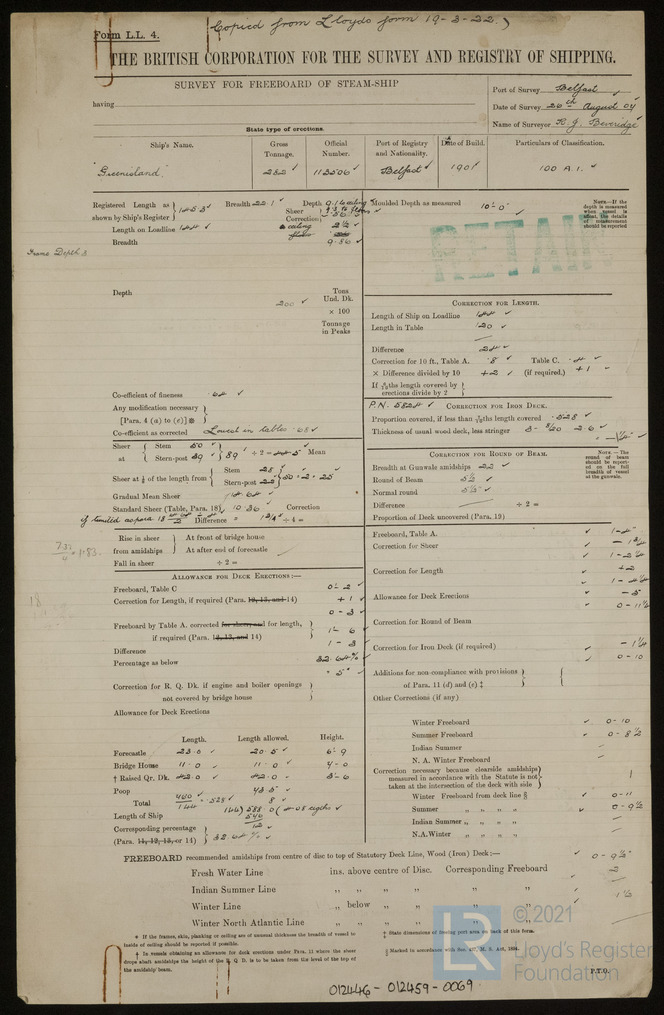 (Copied from Lloyds form 19-3-22.)
Form L.L. 4.
THE BRITISH CORPORATION FOR THE SURVEY AND REGISTRY OF SHIPPING.
SURVEY FOR FREEBOARD OF STEAM-SHIP
having
Port of Survey Belfast
Date of Survey 26th August 04
Name of Surveyor R. J. Beveridge
State type of erections.
Ship's Name. Gross Tonnage. Official Number. Port of Registry and Nationality. Date of Build. Particulars of Classification.
"Greenisland" 282 113506 Belfast 1901 100 A.1.
Registered Length as shown by Ship's Register } 145.5 Breadth 22.1 Depth 9.1
Length on Loadline 144
Breadth 9.86
Depth
200
Tons Und. Dk. × 100
Tonnage in Peaks
Moulded Depth as measured 10'-0"
NOTE—If the depth is measured when vessel is afloat the details of measurement should be reported
RETAIN
CORRECTION FOR LENGTH.
Length of Ship on Loadline 144
Length in Table 120
Difference 24
Correction for 10 ft., Table A. .8 Table C. .4
× Difference divided by 10 +2 (if required.) +1
If 6/10ths length covered by erections divide by 2 }
Co-efficient of fineness .64
Any modification necessary [Para. 4 (a) to (e)] * }
Co-efficient as corrected Lowest in tables .68
P.N. 5824 CORRECTION FOR IRON DECK.
Proportion covered, if less than 7/10ths length covered .528
Thickness of usual wood deck, less stringer
Sheer at { Stem 50 Stern-post 39 } 89 ÷ 2 = 44.5 Mean
Sheer at ¼ of the length from { Stem 28 Stern-post 22 } 50 ÷ 2 = 25
Gradual Mean Sheer
Standard Sheer (Table, Para. 18) Correction
if limited as para 18 Difference ÷ 4 =
CORRECTION FOR ROUND OF BEAM.
NOTE—The round of beam should be reported on the full breadth of vessel at the gunwale.
Breadth at Gunwale amidships 22
Round of Beam 5½
Normal round 5½
Difference ÷ 2 =
Proportion of Deck uncovered (Para. 19)
Rise in sheer from amidships { At front of bridge house
At after end of forecastle
Fall in sheer ÷ 2 =
ALLOWANCE FOR DECK ERECTIONS:—
Freeboard, Table C 0-2
Correction for Length, if required (Para. 12, 13, and 14) +1
0-3
Freeboard by Table A. corrected for sheer, and for length, if required (Para. 12, 13, and 14) } 1-6
Difference 1-3
Percentage as below 32.64%
= 5"
Correction for R. Q. Dk. if engine and boiler openings not covered by bridge house }
Allowance for Deck Erections
Length. Length allowed. Height.
Forecastle 23.0 20.5 6-9
Bridge House 11.0 11.0 7-0
† Raised Qr. Dk. 42.0 42.0 3-6
Poop
Total .528
Length of Ship 144
Corresponding percentage (Para. 11, 12, 13, or 14) } 32.64%
Freeboard, Table A.
Correction for Sheer
Correction for Length +2
Allowance for Deck Erections -5
0-11½
Correction for Round of Beam
Correction for Iron Deck (if required) -1½
0-10
Additions for non-compliance with provisions of Para. 11 (d) and (e) ‡ } {
Other Corrections (if any)
Winter Freeboard 0-10
Summer Freeboard 0-8½
Indian Summer
N. A. Winter Freeboard
Correction necessary because clearside amidships measured in accordance with the Statute is not taken at the intersection of the deck with side } 1
Winter Freeboard from deck line § 0-11
Summer „ „ „ „ 0-9½
Indian Summer „ „ „ „
N.A. Winter „ „ „ „
FREEBOARD recommended amidships from centre of disc to top of Statutory Deck Line, Wood (Iron) Deck:— 0-9½
Fresh Water Line ins. above centre of Disc. Corresponding Freeboard 2
Indian Summer Line „ „ „ „ „
Winter Line „ below „ „ „ 1½
Winter North Atlantic Line „ „ „ „ „
* If the frames, skin, planking or ceiling are of unusual thickness the breadth of vessel to inside of ceiling should be reported if possible.
† In vessels obtaining an allowance for deck erections under Para. 11 where the sheer drops abaft amidships the height of the R. Q. D. is to be taken from the level of the top of the amidship beam.
‡ State dimensions of freeing port area on back of this form.
§ Marked in accordance with Sec. 437, M. S. Act, 1894.
P.T.O.
© 2021
Lloyd's Register
Foundation
LR
012446-012459-0069